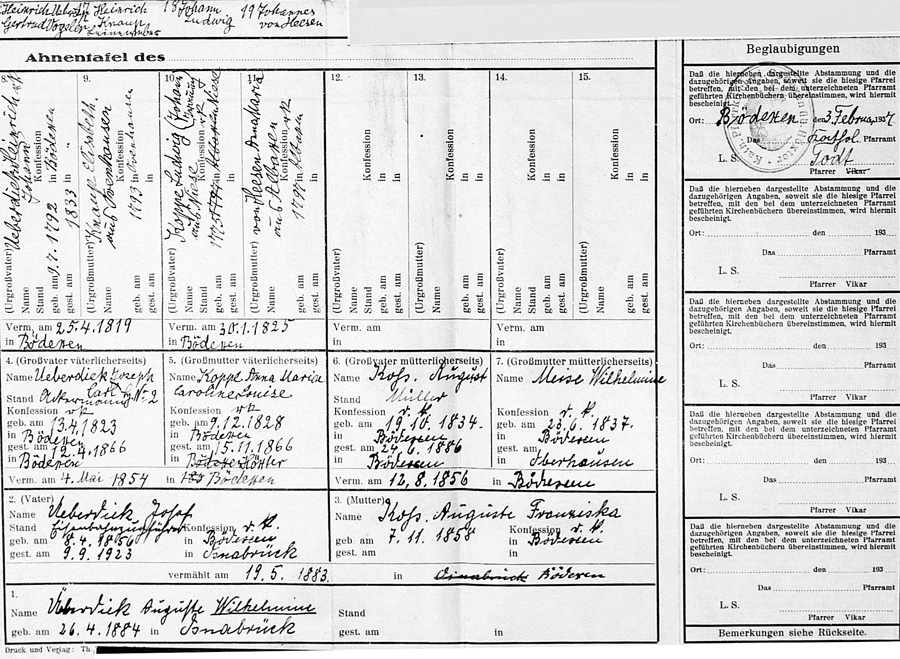 Heinrich Ueberdick Heinrich 18 Johann 19 Johannes
Gertrud Vogelen Knaup Ludwig von Heesen
Ahnentafel des
8.
(Urgroßvater) Ueberdick Heinrich rk
Name Johann
Stand Konfession
geb. am 9.7.1792 in Bödexen
gest. am 1833 in
9.
(Urgroßmutter) Knaup Elisabeth
Name aus Ovenhausen
Konfession
geb. am 1793 in Ovenhausen
gest. am in
10.
(Urgroßvater) Koppe Ludwig (Johann
Name aus Niese
Stand Konfession rk
geb. am in
gest. am in
11.
(Urgroßmutter) von Heesen Anna Maria
Name aus Albaxen
Konfession rk
geb. am 1799 in Albaxen
gest. am in
12.
(Urgroßvater)
Name
Stand Konfession
geb. am in
gest. am in
13.
(Urgroßmutter)
Name
Konfession
geb. am in
gest. am in
14.
(Urgroßvater)
Name
Stand Konfession
geb. am in
gest. am in
15.
(Urgroßmutter)
Name
Konfession
geb. am in
gest. am in
Verm. am 25.4.1819
in Bödexen
Verm. am 30.1.1825
in Bödexen
Verm. am
in
Verm. am
in
4. (Großvater väterlicherseits)
Name Ueberdick Joseph
Carl Hs. Nr. 2
Stand Ackermann
Konfession rk
geb. am 13.4.1823
in Bödexen
gest. am 12.4.1866
in Bödexen
5. (Großmutter väterlicherseits)
Name Koppe Anna Maria
Caroline Louise
Konfession rk
geb. am 9.12.1828
in Bödexen
gest. am 15.11.1866
in Bödexen Höxter
Verm. am 4. Mai 1854 in Bödexen
6. (Großvater mütterlicherseits)
Name Koß. August
Stand Müller
Konfession r. k.
geb. am 19.10.1834.
in Bödexen
gest. am 24.6.1886
in Bödexen
7. (Großmutter mütterlicherseits)
Name Meise Wilhelmine
Konfession r. k.
geb. am 23.6.1837.
in Bödexen
gest. am
in Oberhausen
Verm. am 12.8.1856 in Bödexen
2. (Vater)
Name Ueberdick Josef
Stand Eisenbahnzugführer Konfession r. k.
geb. am 8.4.1856 in Bödexen
gest. am 9.9.1923 in Osnabrück
3. (Mutter)
Name Koß. Auguste Franziska
Konfession r. k.
geb. am 7.11.1858 in Bödexen
gest. am in
vermählt am 19.5.1883. in Osnabrück Bödexen
1.
Name Überdick Auguste Wilhelmine Stand
geb. am 26.4.1884 in Osnabrück gest. am in
Druck und Verlag: Th
Beglaubigungen
Daß die hierneben dargestellte Abstammung und die
dazugehörigen Angaben, soweit sie die hiesige Pfarrei
betreffen, mit den bei dem unterzeichneten Pfarramt
geführten Kirchenbüchern übereinstimmen, wird hiermit
bescheinigt.
Ort: Bödexen den 3. Februar 1937
Das kathol. Pfarramt
L. S. Todt
Pfarrer Vikar
Daß die hierneben dargestellte Abstammung und die
dazugehörigen Angaben, soweit sie die hiesige Pfarrei
betreffen, mit den bei dem unterzeichneten Pfarramt
geführten Kirchenbüchern übereinstimmen, wird hiermit
bescheinigt.
Ort: den 193
Das Pfarramt
L. S.
Pfarrer Vikar
Daß die hierneben dargestellte Abstammung und die
dazugehörigen Angaben, soweit sie die hiesige Pfarrei
betreffen, mit den bei dem unterzeichneten Pfarramt
geführten Kirchenbüchern übereinstimmen, wird hiermit
bescheinigt.
Ort: den 193
Das Pfarramt
L. S.
Pfarrer Vikar
Daß die hierneben dargestellte Abstammung und die
dazugehörigen Angaben, soweit sie die hiesige Pfarrei
betreffen, mit den bei dem unterzeichneten Pfarramt
geführten Kirchenbüchern übereinstimmen, wird hiermit
bescheinigt.
Ort: den 193
Das Pfarramt
L. S.
Pfarrer Vikar
Daß die hierneben dargestellte Abstammung und die
dazugehörigen Angaben, soweit sie die hiesige Pfarrei
betreffen, mit den bei dem unterzeichneten Pfarramt
geführten Kirchenbüchern übereinstimmen, wird hiermit
bescheinigt.
Ort: den 193
Das Pfarramt
L. S.
Pfarrer Vikar
Bemerkungen siehe Rückseite.